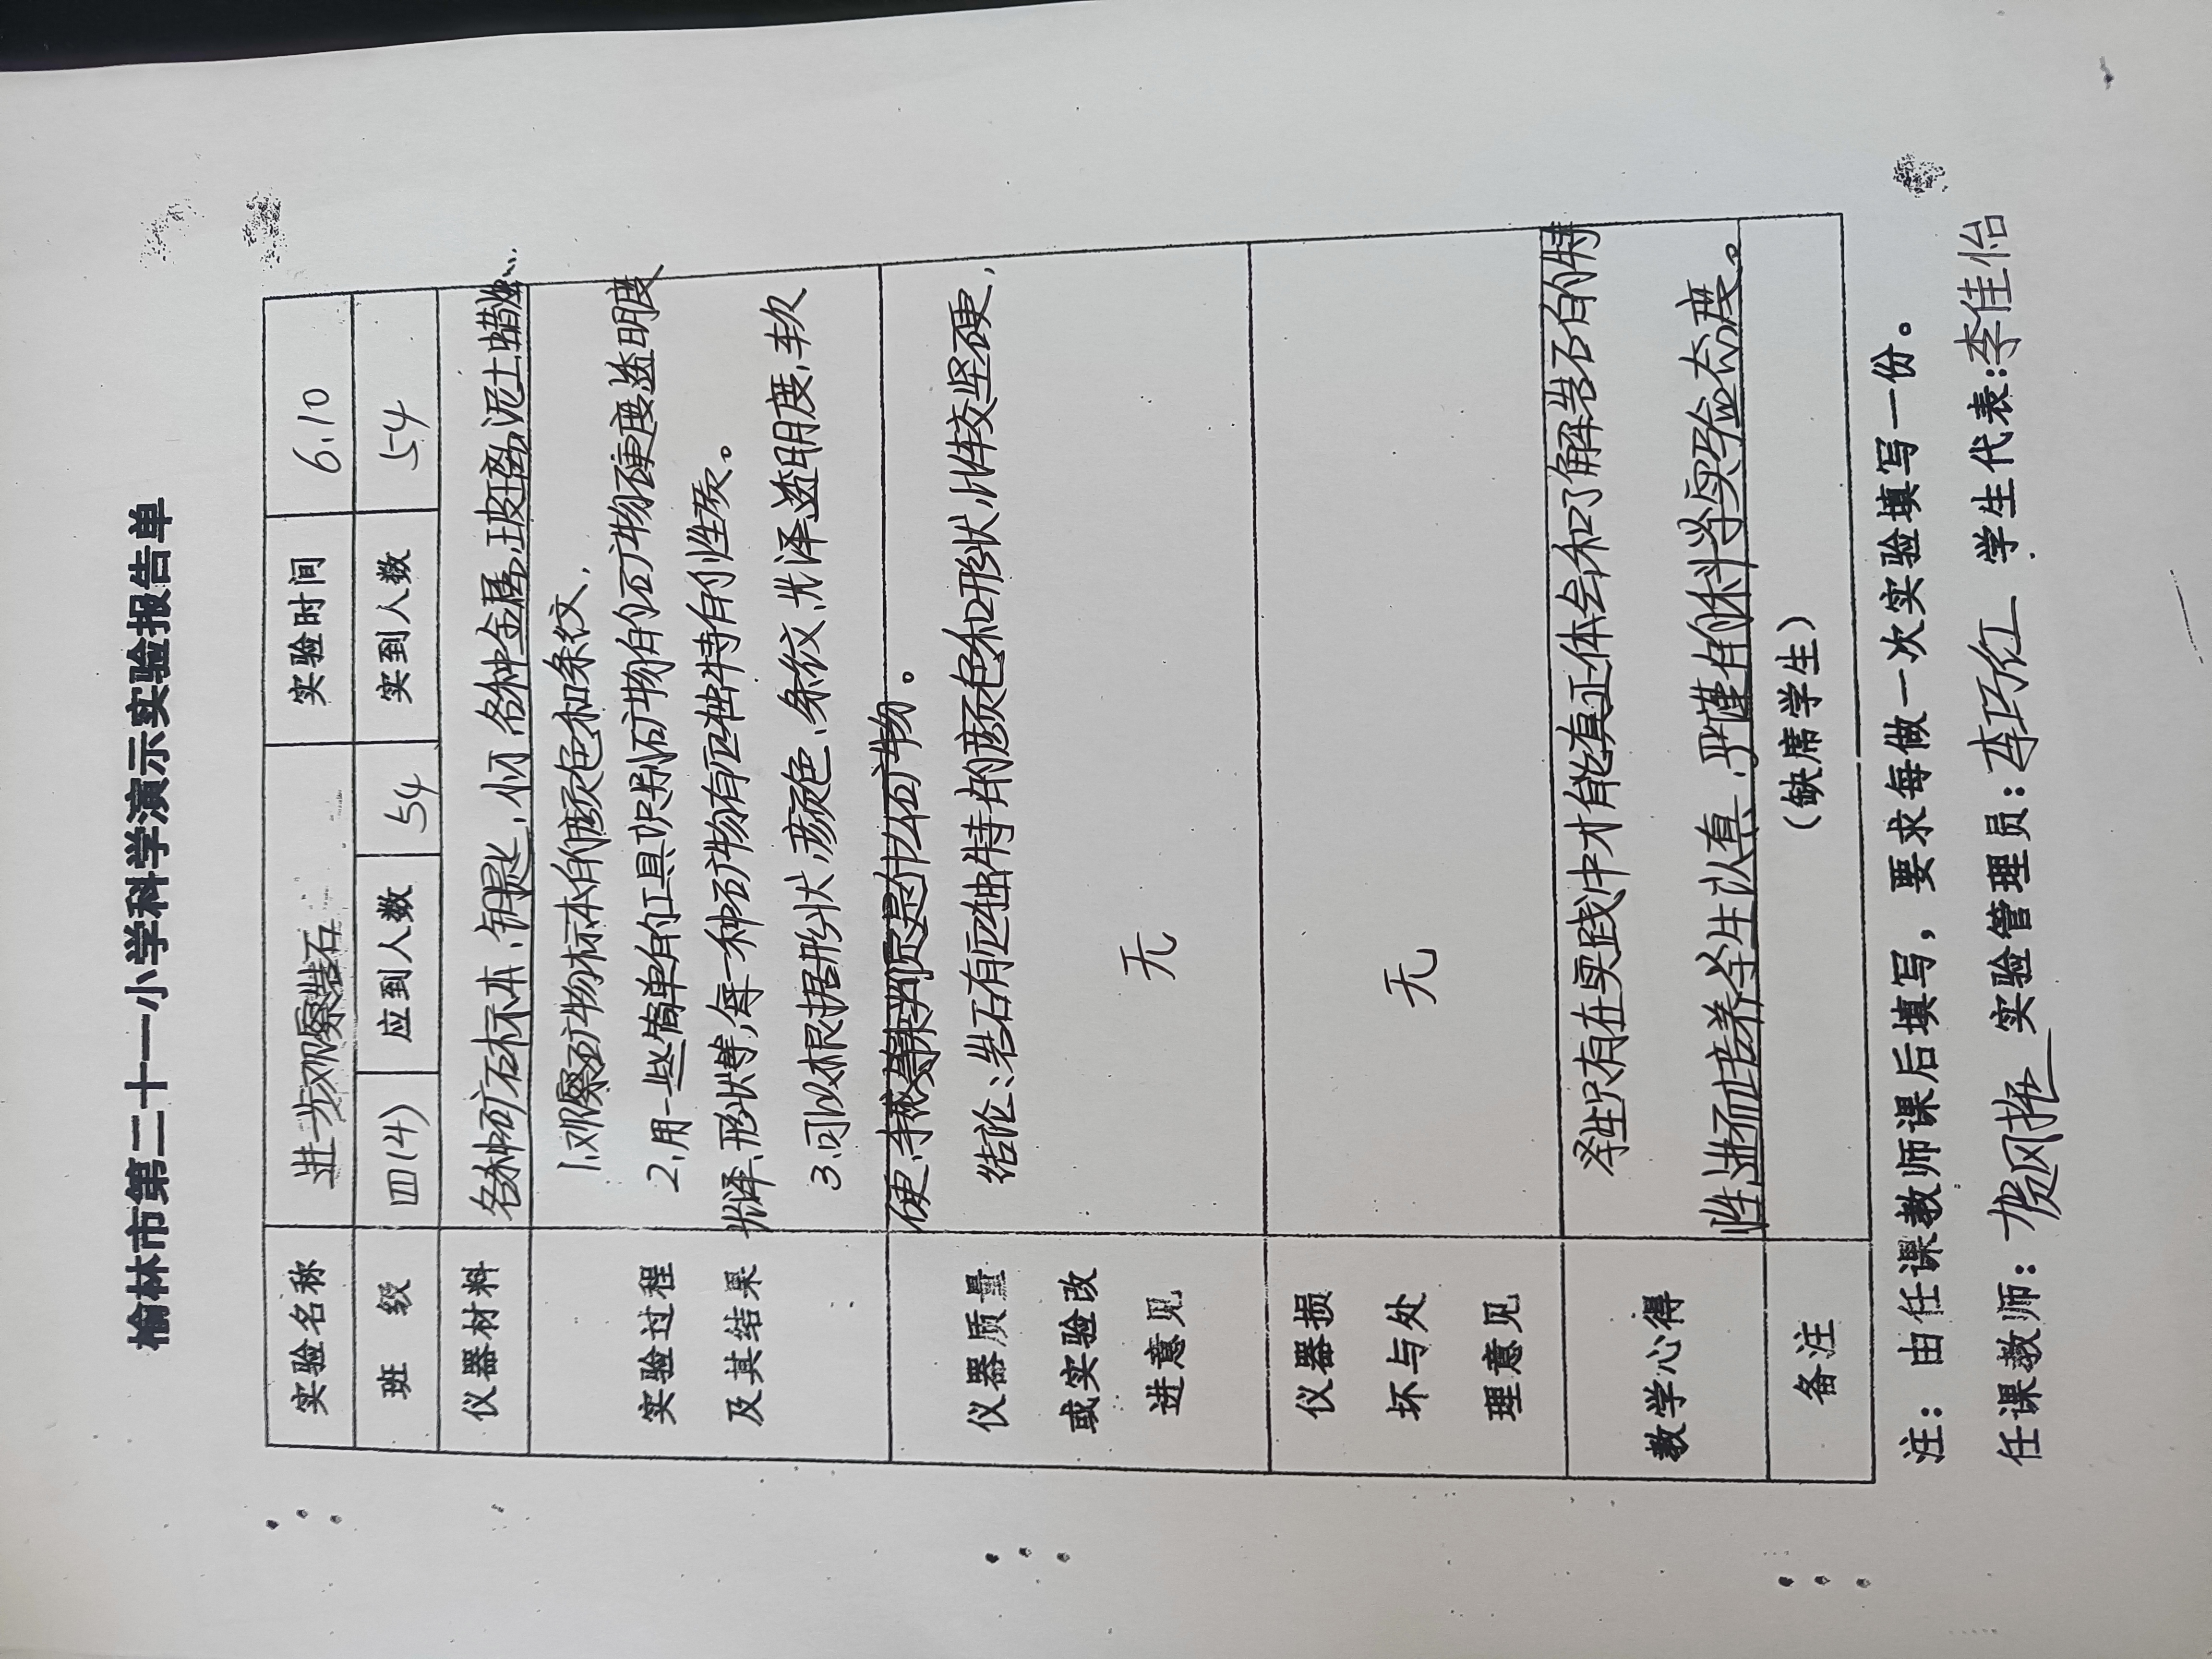 榆林市第二十一小学科学演示实验报告单
实验名称 进一步观察岩石 实验时间 6.10
班 级 四(4) 应到人数 54 实到人数 54
仪器材料 各种矿石标本、钥匙、小刀、各种金属、玻璃、泥土、蜡烛…
1.观察矿物标本的颜色和条纹.
实验过程 2.用一些简单的工具识别矿物的矿物硬度透明度
及其结果 光泽、形状等,每一种矿物有匹独特有的性质。
3.可以根据形状,颜色、条纹、光泽透明度、软
硬、手感等来判定是什么矿物。
仪器质量 结论:岩石有匹独特的颜色和形状,比较坚硬,
或实验改
进意见 无
仪器损
坏与处 无
理意见
学生只有在实践中才能真正体会和了解岩石的特
教学心得
性进而培养学生认真、严谨的科学实验态度。
备注 (缺席学生)
注：由任课教师课后填写，要求每做一次实验填写一份。
任课教师: 风艳 实验管理员: 李巧红 学生代表:李佳怡